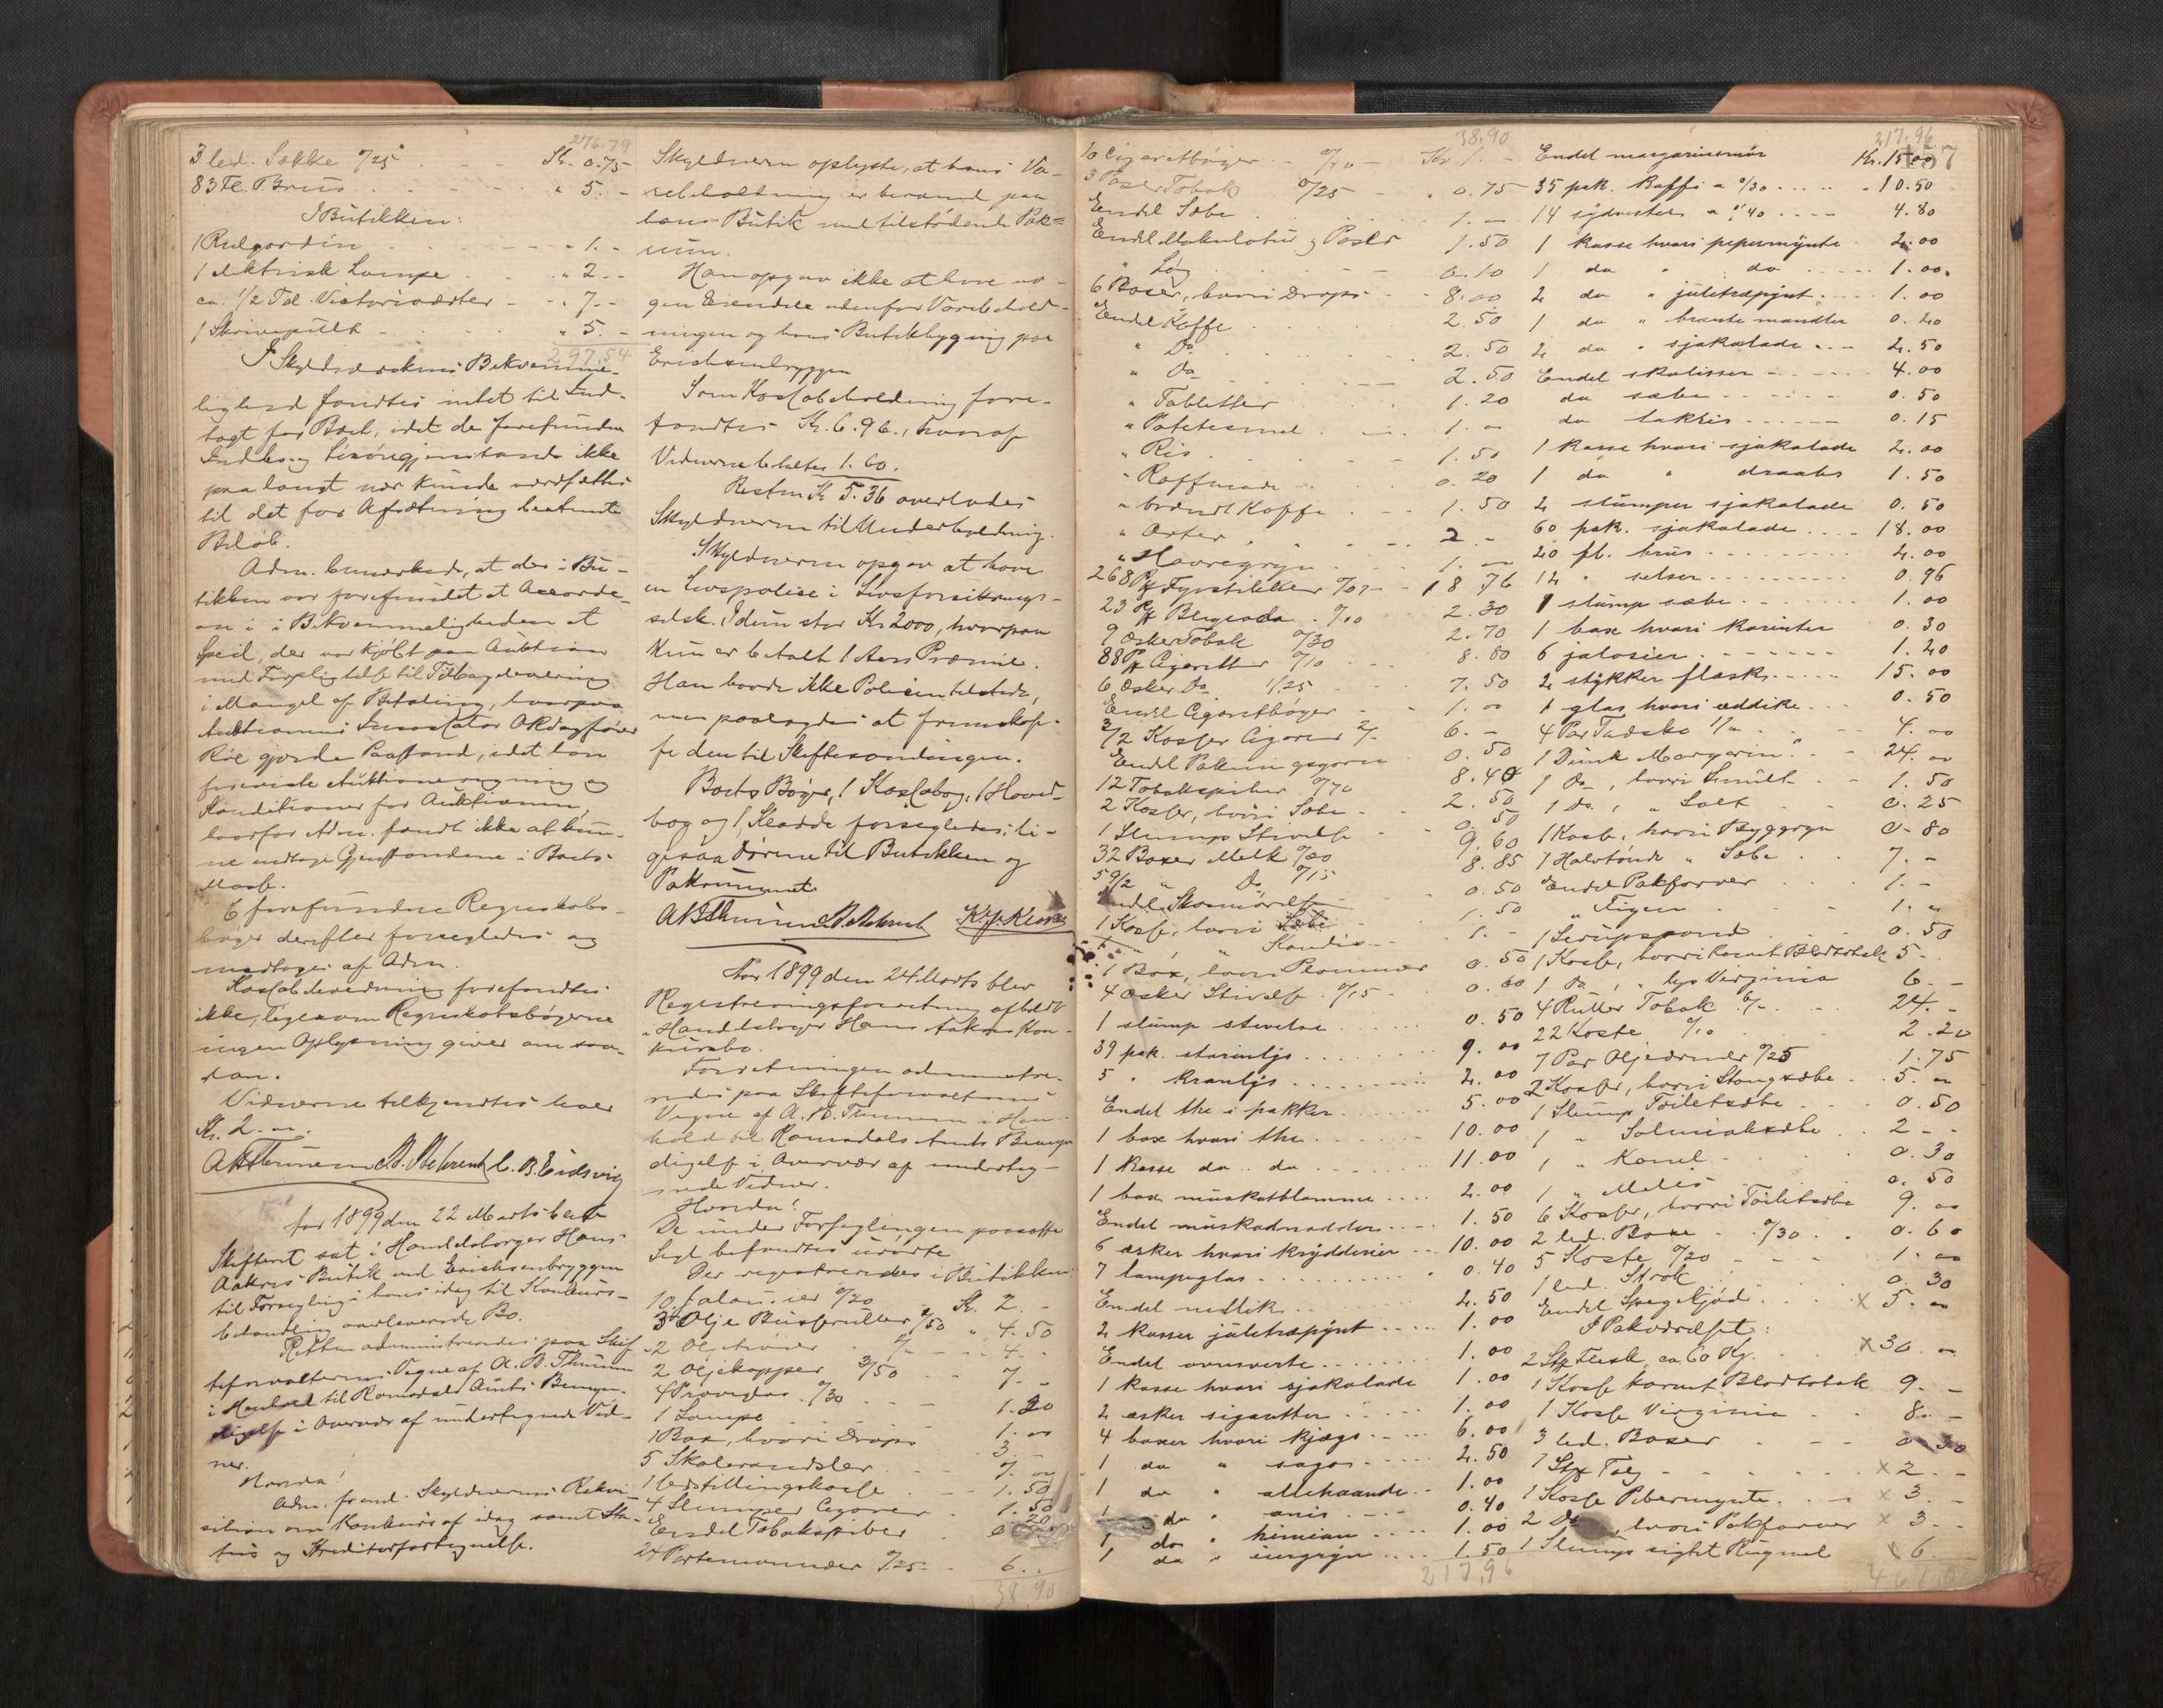 276.79
3 led. Sække 0/25 Kr. 0.75
83 Fl. Brus " 5. -
I Butikken:
1 Rulgardin " 1. -
1 elektrisk Lampe " 2. -
ca. 1/2 Td. Victoriaærter " 7. -
1 Skrivepult " 5. -
297.54
I Skyldnerskens Bekvemme-
lighed fandtes intet til Ind-
tagt for Boet, idet de forefundne
Indbo og Løsøregjenstande ikke
paa langt nær kunde værdsættes
til det for Afsætning bestemte
Beløb.
Adm. bemærkede, at der i Bu-
tikken var forefundet et
i Bekvemmeligheden et
Speil, der var kjøbt paa Auktion
med Forpligtelse til Tilbagelevering
i Mangel af Betaling, hvorpaa
Auktionens Incassator OR.dagfører
Roe gjorde Paastand, idet han
foreviste Auktionsregning og
Konditioner for Auktionen,
hvorfor Adm. fandt ikke at kun-
ne medtage Gjenstandene i Boets
Masse.
6 forefundne Regnskabs-
bøger derefter forsegledes og
medtoges af Adm.
Kassabeholdning forefandtes
ikke, ligesom Regnskabsbøgerne
ingen Oplysning giver om saa-
dan.
Vidnerne tilkjendtes hver
Kr. 2. -
A B Thunem A. Behrent C. B. Eidsvig
Aar 1899 den 22 Marts blev
Skifteret sat i Handelsborger Hans
Aakres Butik ved Erichsenbryggen
til Forsegling i hans idag til Konkurs-
behandling overleverede Bo.
Retten administreredes paa Skif-
teforvalterens Vegne af A. B. Thunem
i Henhold til Romsdals Amts Bemyn-
digelse i Overvær af undertegnede Vid-
ner.
Hvorda!
Adm. freml. Skyldnerens Rekvi-
sition om Konkurs af idag samt Sta-
tus og Kreditorfortegnelse.
Skyldneren oplyste, at hans Va-
rebeholdning er beroende paa
hans Butik med tilstødende Pak-
rum.
Han opgav ikke at have no-
gen Eiendele udenfor Varebehold-
ningen og hans Butikbygning paa
Erichsenbryggen
Som Kassabeholdning fore-
fandtes Kr. 6.96., hvoraf
Vidnerne betaltes 1.60.
Resten Kr 5.36 overlodes
Skyldneren til Underholdning.
Skyldneren opgav at have
en Livspolice i Livsforsikrings-
selsk. Idun stor Kr 2000, hvorpaa
kun er betalt 1 Aars Præmie.
Han havde ikke Policen tilstede,
men paalagdes at fremskaf-
fe den til Skiftesamlingen.
Boets Bøger, 1 Kassabog, 1 Hoved-
bog og 1 Kladde forsegledes, li-
gesaa Dørene til Butikken og
Pakrummet.
A B Thunem A. Behrent K. J. Kleve
Aar 1899 den 24 Marts blev
Registreringsforretning afholdt
i Handelsborger Hans Aakres Kon-
kursbo.
Forretningen administre-
redes paa Skifteforvalterens
Vegne af A. B. Thunem i Hen-
hold til Romsdals Amts Bemyn-
digelse i Overvær af underteg-
nede Vidner.
Hvorda!
De under Forseglingen paasatte
Segl befandtes urørte
Der registreredes i Butikken:
10 Jalousier 0/20 Kr. 2. -
3 Olje Buseruller 1/50 " 4.50
2 Oljetrøier 2/- 4. -
2 Oljekapper 3/50 7. -
4 0/30 1.20
1 Lampe 1. -
1 Box, hvori Drops 3. -
5 Skolerandsler 7. -
1 Udstillingskasse 1.50
4 Slumper Cigarer 1.50
Endel Tobakspiber
24 Portemonnaier 0/25 6. -
38.90
38.90
10 Cigaretbøger 0/10 Kr. 1. -
3 Poser Tobak 0/25 " 0.75
Endel Sæbe 1. -
Endel Makulatur og Poser 1.50
" Løg 0.10
6 Boxer, hvori Drops 8.00
Endel Kaffe 2.50
" Do 2.50
" Do 2.50
" Tabletter 1.20
" Potetesmel 1. -
" Ris 1.50
" Raffinade 0.20
" brændt Kaffe 1.50
" Erter 2 -
" Havregryn 1. -
268 Pk Fyrstikker 0/07 18.76
23 Pk Blegsoda 0/10 2.30
9 Æsker Tobak 0/30 2.70
88 Pk Cigaretter 0/10 8.80
6 Æsker Do 1/25 7.50
Endel Cigaretbøger 1. -
3/2 Kasser Cigarer 2/- 6. -
Endel Pakningsgarn 0.50
12 Tobakspiber 0/70 8.40
2 Kasser, hvori Sæbe 2.50
1 Slump Stivelse 0.50
32 Boxer Melk 0/30 9.60
59/2 " Do 0/15 8.85
Endel Skosmørelse 0.50
1 Kasse, hvori Sæbe 1.50
1 " " Kandis 1. -
1 Box, hvori Blommer 0.50
4 Æsker Stivelse 0/15 0.60
1 slump stivelse 0.50
39 pak. stearinlys 9.00
5 " kronlys 2.00
Endel the i pakker 5.00
1 box hvori the 10.00
1 kasse do. do 11.00
1 box muskatblomme 2.00
Endel muskadnødder 1.50
6 æsker hvori krydderier 10.00
7 lampeglas 0.40
Endel nedlik 2.50
2 kasser juletræpynt 1.00
Endel 1.00
1 kasse hvori sjokolade 1.00
2 æsker sigaretter 1.00
4 boxer hvori kjægs 6.00
1 do " sago 2.50
1 do " allehaande 1.00
1 do " anis 0.40
1 do " kimian 1.00
1 do " 1.50
217,96
217.96
157
Endel margarinsmør Kr. 15.00
35 pak. Kaffi a 0/30 " 10.50
14 sydvester a 0/40 4.80
1 kasse hvori pepermynte 2.00
1 do " do 1.00
2 do " juletræpynt 1.00
1 do " brænte mandler 0.20
2 do " sjokolade 2.50
Endel skolisser 4.00
do sæbe 0.50
do lakris 0.15
1 kasse hvori sjokolade 2.00
1 do " draabs 1.50
2 stumper sjokolade 0.50
60 pak. sjokolade 18.00
20 fl. brus 2.00
12 " selser 0.96
1 stump sæbe 1.00
1 box hvori korinter 0.30
6 jalosier 1.20
2 stykker flæsk 15.00
1 glas hvori eddike 0.50
4 Par Træsko 1/- 4. -
1 Dunk Margarin 24. -
1 Do, hvori Smult 1.50
1 do, " Salt 0.25
1 Kasse, hvori Byggryn 0.80
1 Halvtønde " Sæbe 7. -
Endel Pakfarver 1. -
" Figen 1. -
1 Sirupspand 0.50
1 Kasse, hvori karvet Bladtobak 5. -
1 Do, " lys Virginia 6. -
4 Ruller Tobak 6/- 24. -
22 Koste 0/10 2.20
7 Par Oljeærmer 0/25 1.75
2 Kasser, hvori Stangsæbe 5. -
1 Slump Toiletsæbe 0.50
1 " Salmiaksæbe 2. -
1 " Kanel 0.30
1 " Melis 0.50
6 Kasser, hvori Toiletsæbe 9. -
2 led. Boxe 0/30 0.60
5 Koste 0/20 1. -
1 led. Strok 0.30
Endel Spegekjød x 5. -
I Pakværelset:
2 Stkr Flesk, ca. 60 Kg. x 30. -
1 Kasse karvet Bladtobak 9. -
1 Kasse Virginia 8. -
3 led. Boxer 0.30
1 Stk Talg x 2. -
1 Kasse Pebermynte x 3. -
2 Do, hvori Pakfarver x 3. -
1 Slump sigtet Rugmel x 6. -